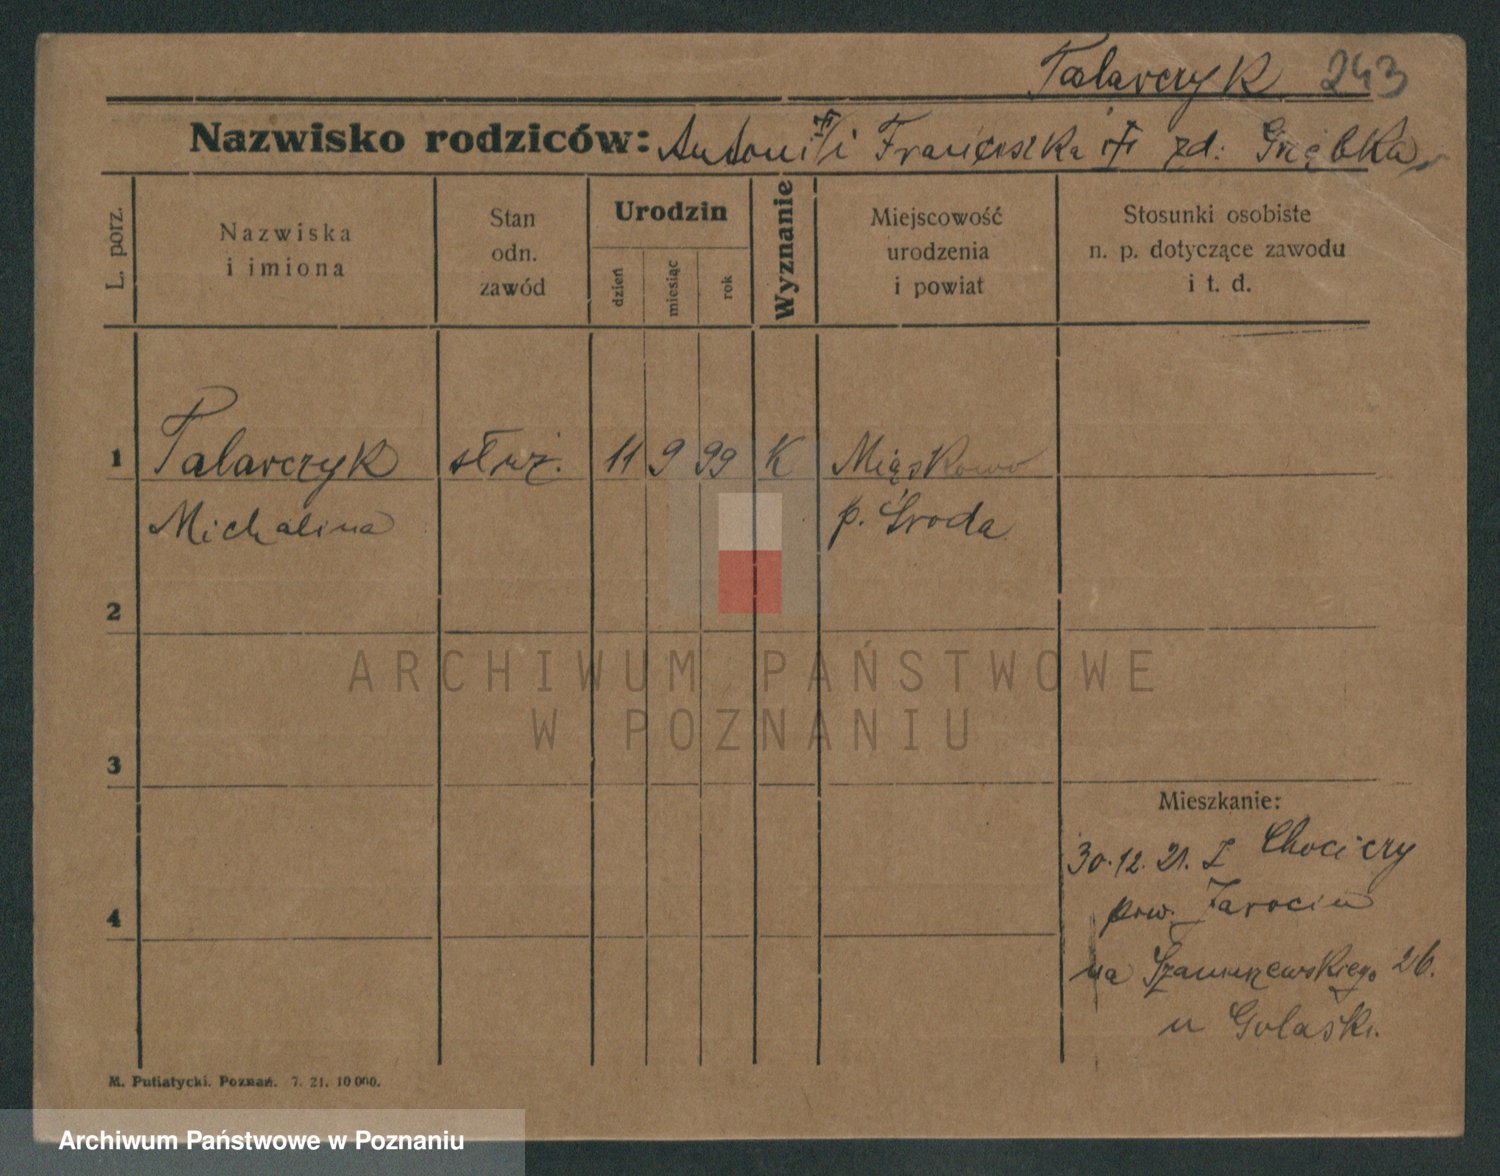 Talarczyk 243
Nazwisko rodziców: Antoni i Franciszka zd:
L. porz.
Nazwiska
i imiona
Stan
odn.
zawód
Urodzin
dzień
miesiąc
rok
Wyznanie
Miejscowość
urodzenia
i powiat
Stosunki osobiste
n. p. dotyczące zawodu
i t. d.
1 Talarczyk służ. 11 9 99 K Miąskowo
Michalina p. Środa
2
ARCHIWUM PAŃSTWOWE
W POZNANIU
3
Mieszkanie:
30.12.21. Z Chociczy
pow. Jarocin
4
na 26.
u Golaski.
M. Putiatycki. Poznań. 7. 21. 10 000.
Archiwum Państwowe w Poznaniu